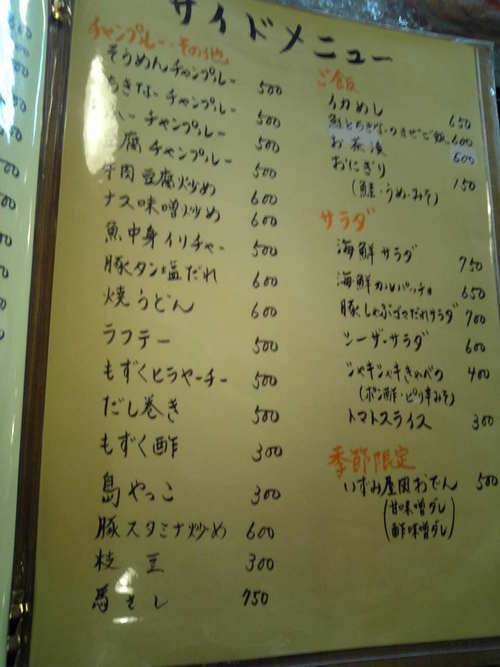 サイドメニュー
チャンプルー・その他
そうめんチャンプルー 500
ちきなーチャンプルー 500
ーチャンプルー 500
豆腐チャンプルー 500
牛肉豆腐炒め 600
ナス味噌炒め 600
魚中身イリチャー 500
豚タン塩だれ 600
焼うどん 600
ラフテー 500
もずくヒラヤーチー 500
だし巻き 500
もずく酢 300
島やっこ 300
豚スタミナ炒め 600
枝豆 300
馬さし 750
ご飯
イカめし 650
鮭とちきなーのまぜご飯 600
お茶漬 600
おにぎり 150
(鮭・うめ・みそ)
サラダ
海鮮サラダ 750
海鮮カルパッチョ 650
豚しゃぶゴマだれサラダ 700
シーザーサラダ 600
シャキシャキきゃべつ 400
(ポン酢・ピリ辛みそ)
トマトスライス 300
季節限定
いずみ屋風おでん 500
(甘味噌ダレ)
(酢味噌ダレ)